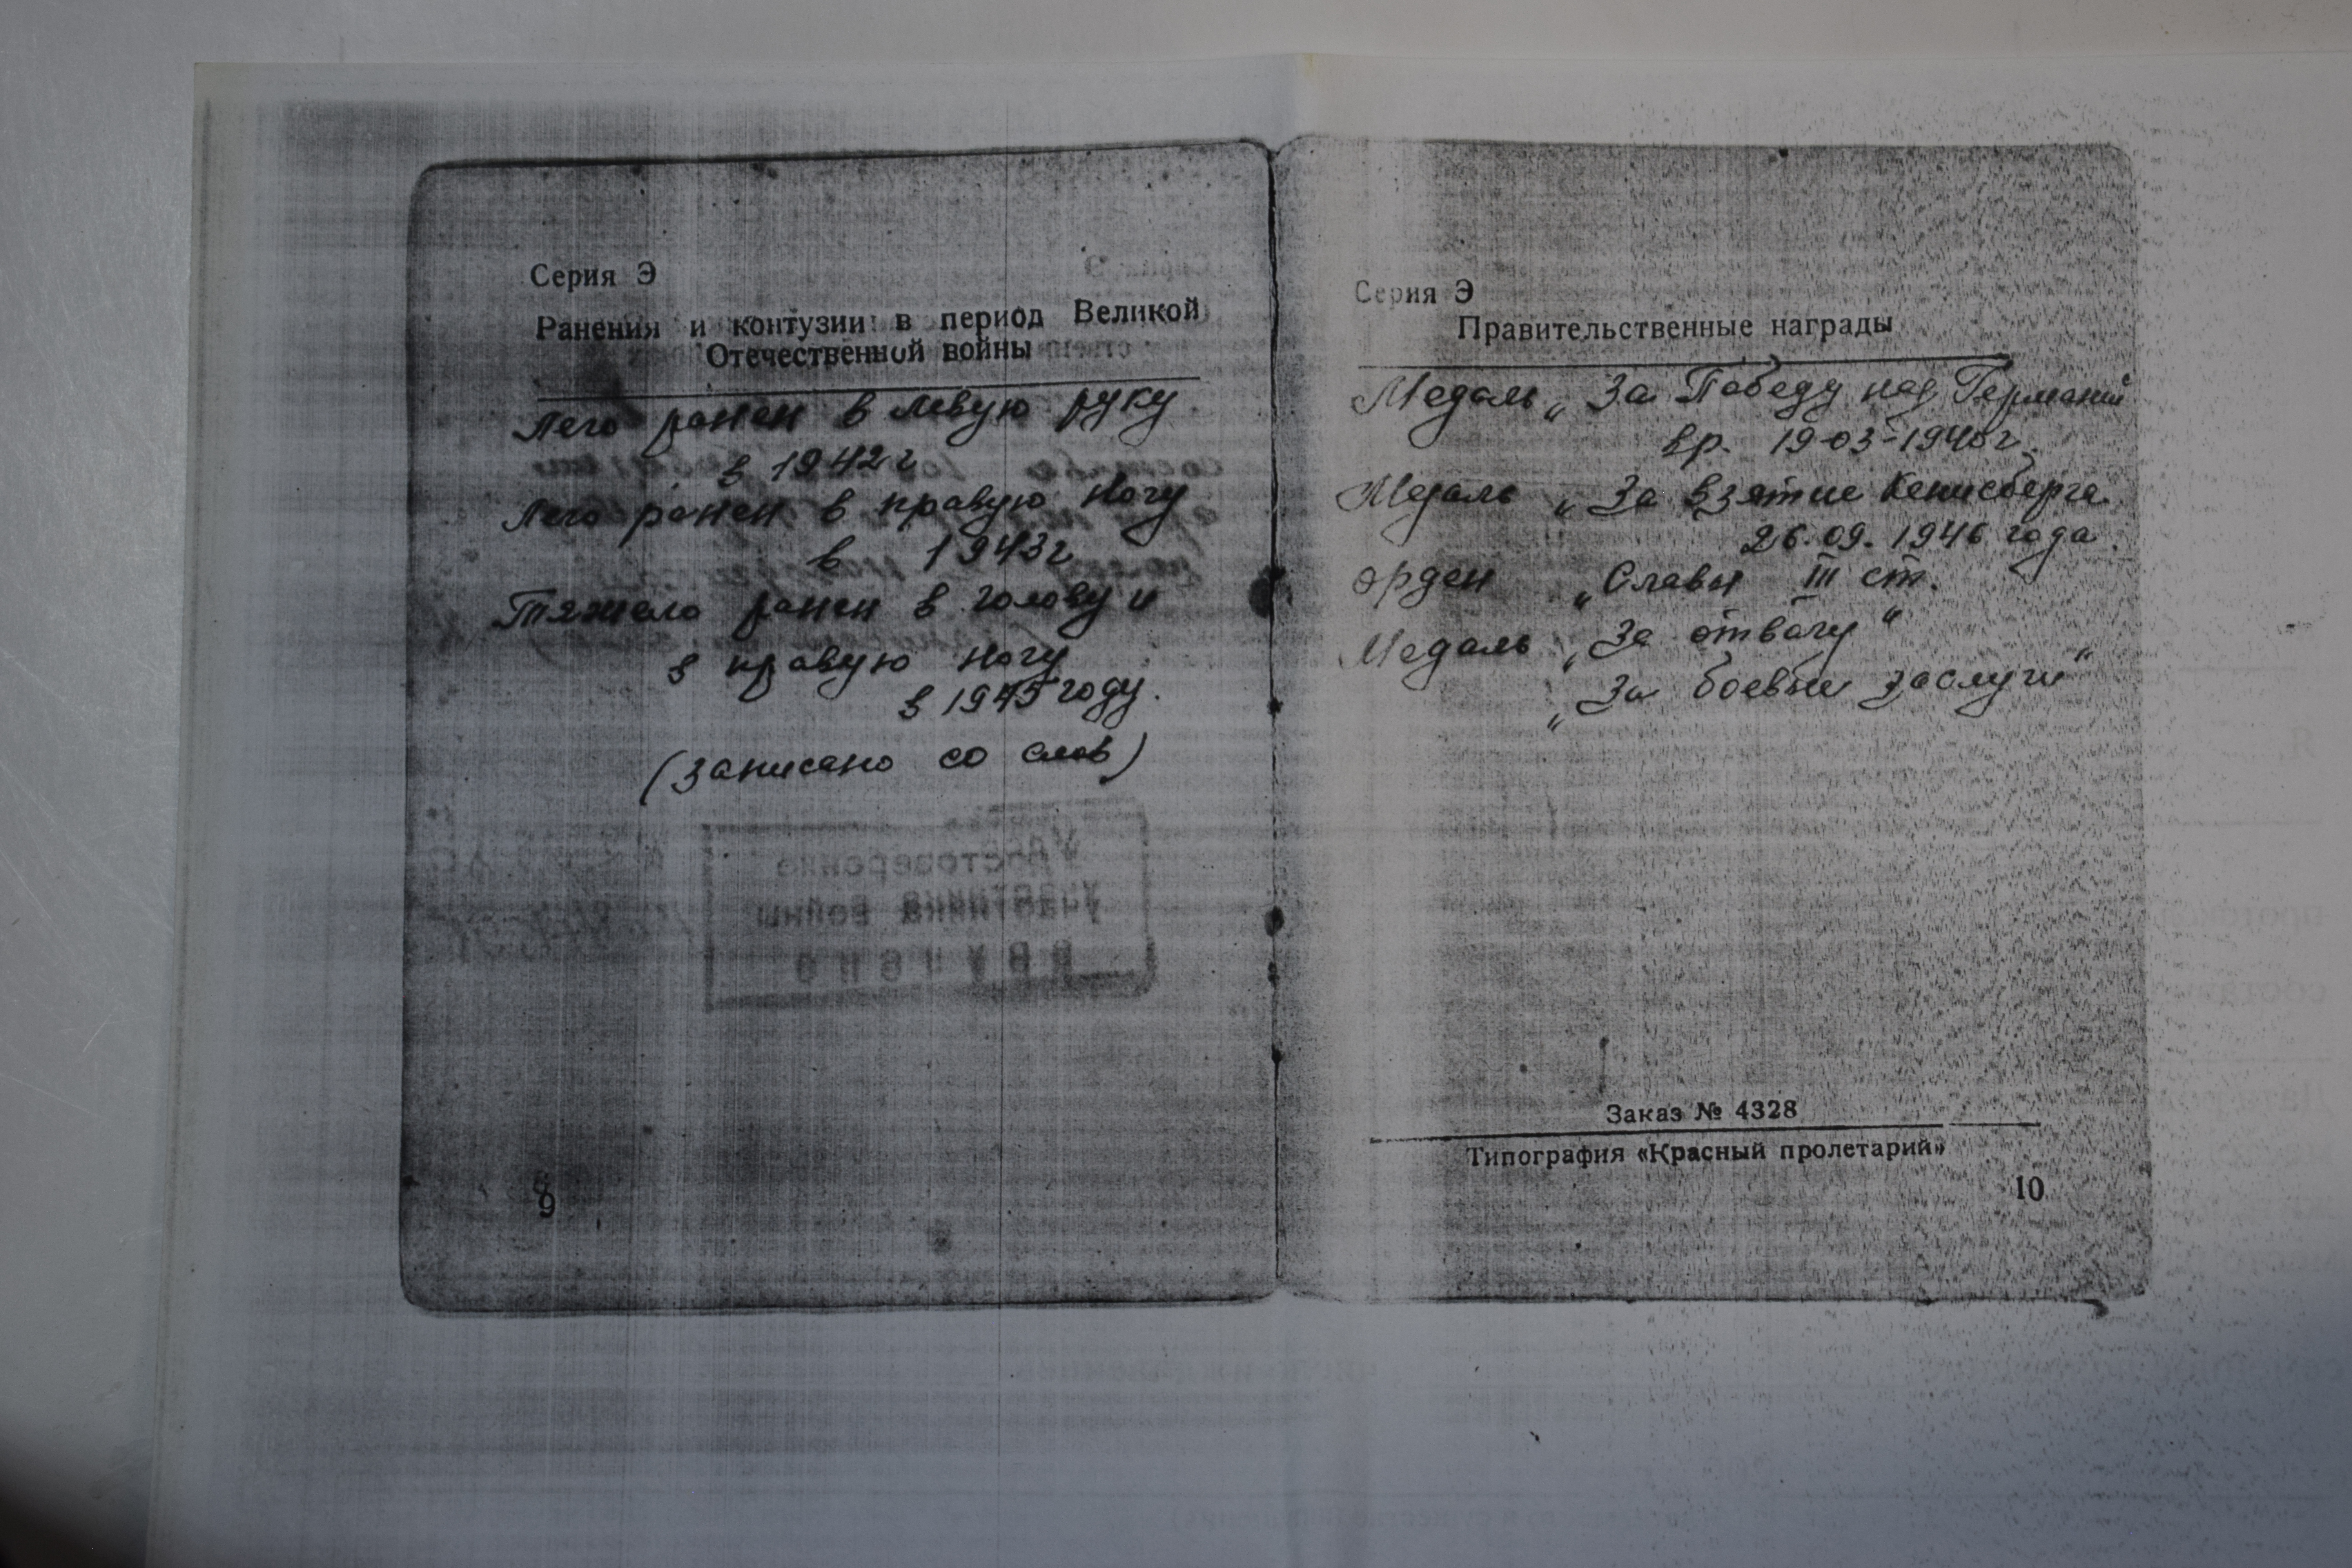 Серия Э
Ранения и контузии в период Великой
Отечественной войны
Легo ранен в левую руку
в 1942 г
Легo ранен в правую ногу
в 1943 г
Тяжело ранен в голову и
в правую ногу
в 1945 году.
(записано со слов)
Удостоверение
участника войны
вручено
9
Серия Э
Правительственные награды
Медаль „За Победу над Германи
вр. 19-03-1946 г.
Медаль „За взятие Кенисберга
26.09.1946 года.
орден „Славы III ст.
Медаль „За отвагу"
„За боевые заслуги"
Заказ № 4328
Типография «Красный пролетарий»
10